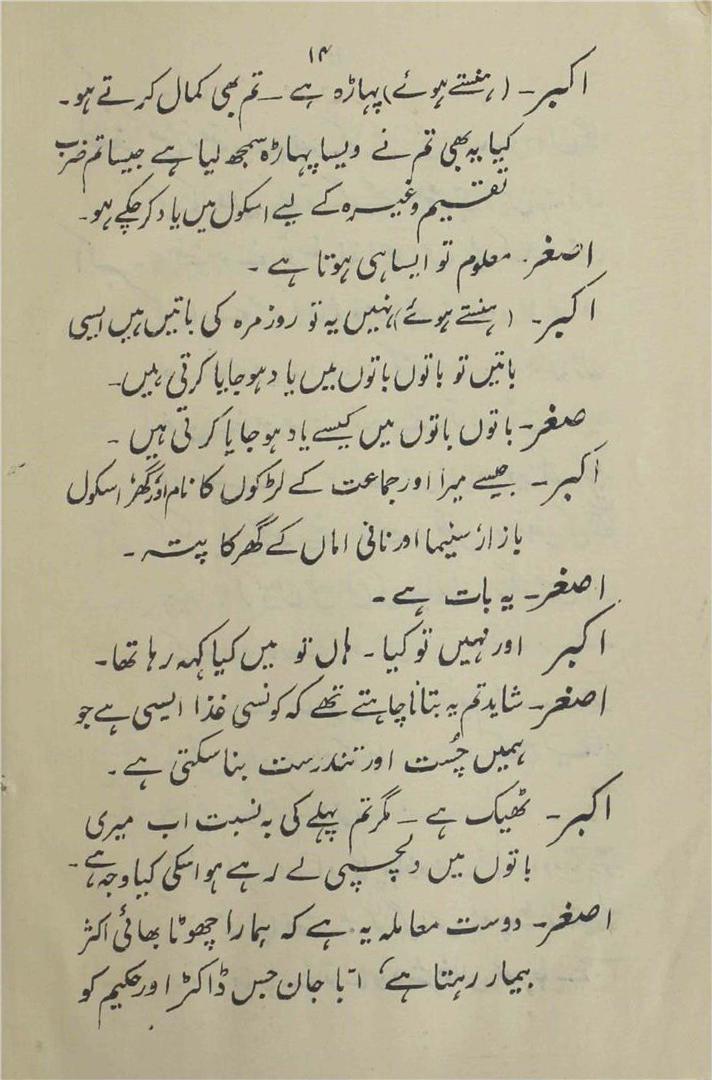 ۱۴
اکبر۔ (ہنستے ہوئے) پہاڑہ ہے۔ تم بھی کمال کرتے ہو۔
کیا یہ بھی تم نے ویسا پہاڑہ سمجھ لیا ہے جیسا تم ضرب
تقسیم وغیرہ کے لیے اسکول میں یاد کر چکے ہو۔
اصغر۔ معلوم تو ایسا ہی ہوتا ہے۔
اکبر۔ (ہنستے ہوئے) نہیں یہ تو روزمرہ کی باتیں ہیں ایسی
باتیں تو باتوں باتوں میں یاد ہو جایا کرتی ہیں۔
صغر۔ باتوں باتوں میں کیسے یاد ہو جایا کرتی ہیں۔
اکبر۔ جیسے میرا اور جماعت کے لڑکوں کا نام اور گھر، اسکول
بازار، سنیما اور نانی اماں کے گھر کا پتہ۔
اصغر۔ یہ بات ہے۔
اکبر اور نہیں تو کیا۔ ہاں تو میں کیا کہہ رہا تھا۔
اصغر۔ شاید تم یہ بتانا چاہتے تھے کہ کونسی غذا ایسی ہے جو
ہمیں چُست اور تندرست بنا سکتی ہے۔
اکبر۔ ٹھیک ہے۔ مگر تم پہلے کی بہ نسبت اب میری
باتوں میں دلچسپی لے رہے ہو اسکی کیا وجہ ہے۔
اصغر۔ دوست معاملہ یہ ہے کہ ہمارا چھوٹا بھائی اکثر
بیمار رہتا ہے، ابّا جان جس ڈاکٹر اور حکیم کو